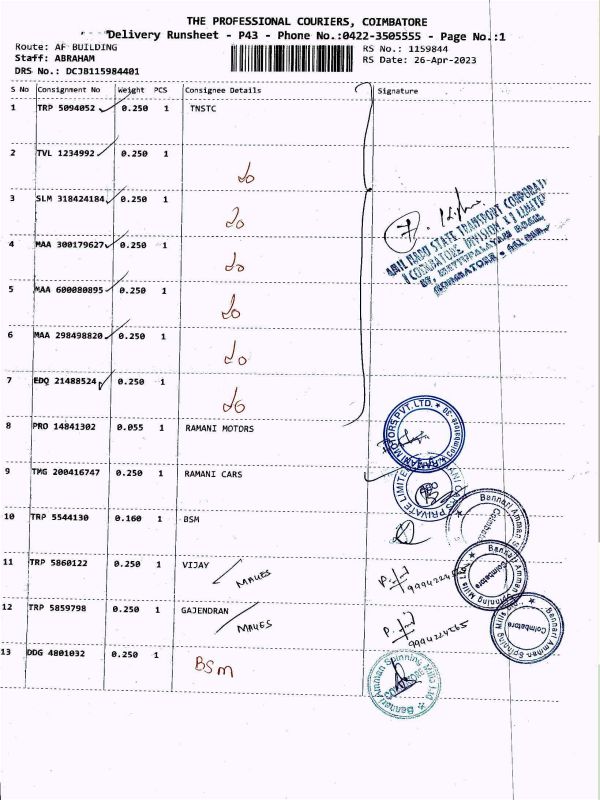 THE PROFESSIONAL COURIERS, COIMBATORE
Delivery Runsheet - P43 - Phone No.:0422-3505555 - Page No.:1
Route: AF BUILDING
Staff: ABRAHAM
DRS No.: DCJB115984401
RS No.: 1159844
RS Date: 26-Apr-2023
S No Consignment No Weight PCS Consignee Details Signature
1 TRP 5094052 0.250 1 TNSTC
2 TVL 1234992 0.250 1
do
3 SLM 318424184 0.250 1
do
4 MAA 300179627 0.250 1
do
5 MAA 600080895 0.250 1
do
6 MAA 298498820 0.250 1
do
7 EDQ 21488524 0.250 1
do
TAMIL NADU STATE TRANSPORT CORPORATION
(COIMBATORE DIVISION I) LIMITED
37, METTUPALAYAM ROAD,
COIMBATORE - 641 043.
8 PRO 14841302 0.055 1 RAMANI MOTORS
RAMANI MOTORS PVT. LTD. Coimbatore-30
9 TMG 200416747 0.250 1 RAMANI CARS
CARS PRIVATE LIMITED
10 TRP 5544130 0.160 1 BSM
Bannari Amman Coimbatore
11 TRP 5860122 0.250 1 VIJAY
MAUES
Bannari Amman Spinning Mills Ltd. Coimbatore
12 TRP 5859798 0.250 1 GAJENDRAN
MAUES
9994224265
Bannari Amman Spinning Mills Coimbatore
13 DDG 4801032 0.250 1 BSM
Bannari Amman Spinning Mills Ltd COIMBATORE